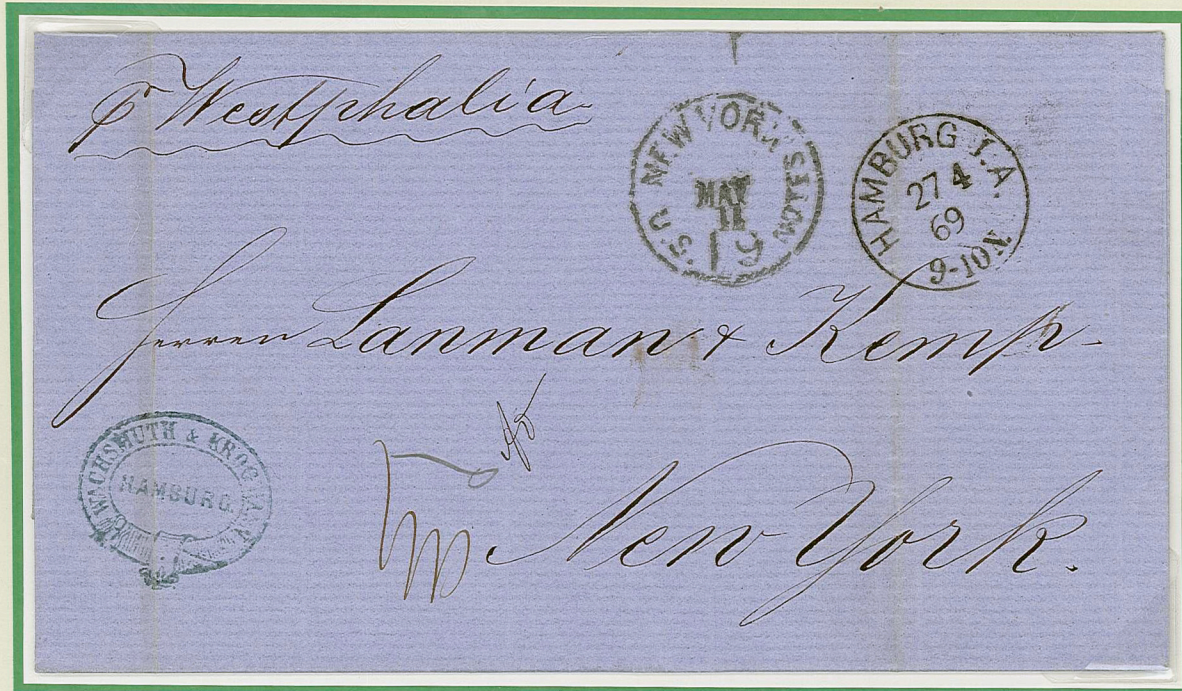 pr Westphalia
NEW YORK
MAY
11
19
U.S. NOTES
HAMBURG I.A.
27 4
69
9-10N
Herren Lanman & Kemp -
WACHSMUTH & KROGMANN
HAMBURG.
New York.